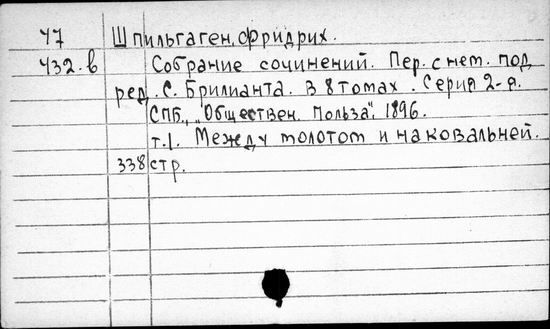 У7 Шпильгаген, Фридрих.
У32-в Собрание сочинений. Пер. с нем. под
ред. С. Брилианта. В 8 томах. Серия 2-я.
СПБ., "Обществен. Польза", 1896.
т.1. Между молотом и наковальней.
338 стр.